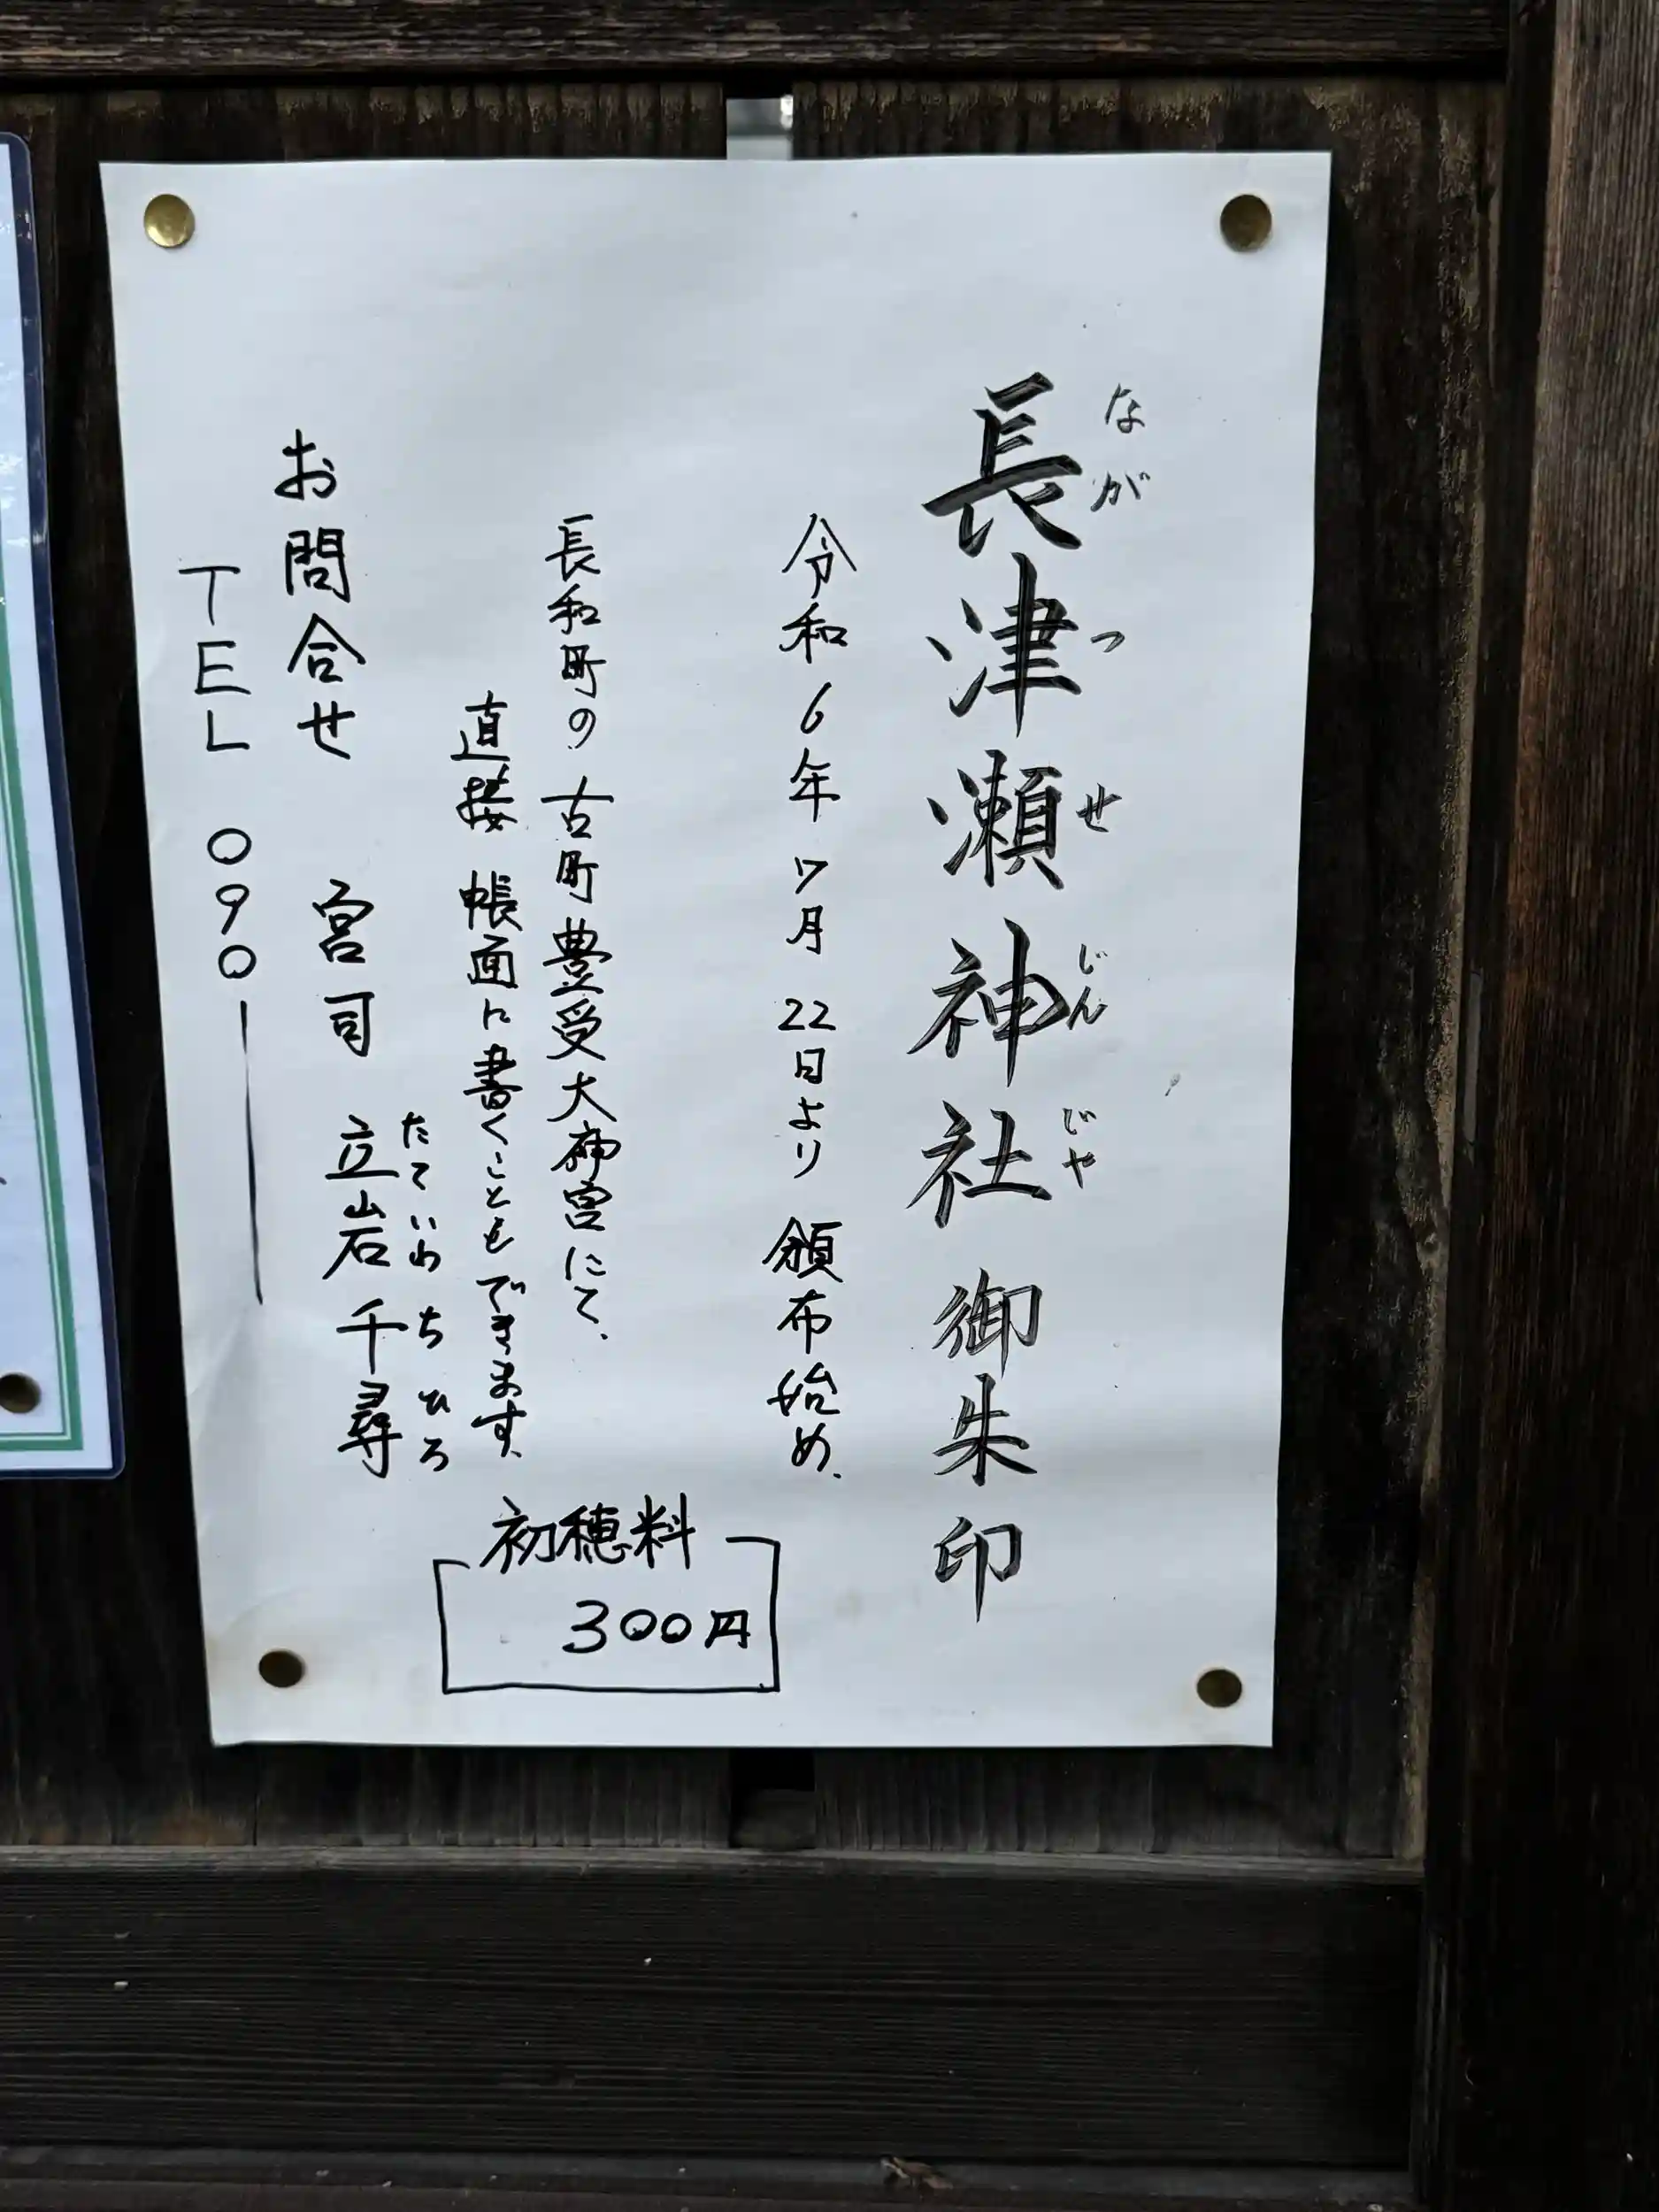 長津瀬神社 御朱印
ながつせじんじゃ
令和6年7月22日より 頒布始め、
長和町の古町豊受大神宮にて、
直接帳面に書くこともできます、
初穂料
300円
お問合せ 宮司 立岩千尋
たていわちひろ
TEL 090